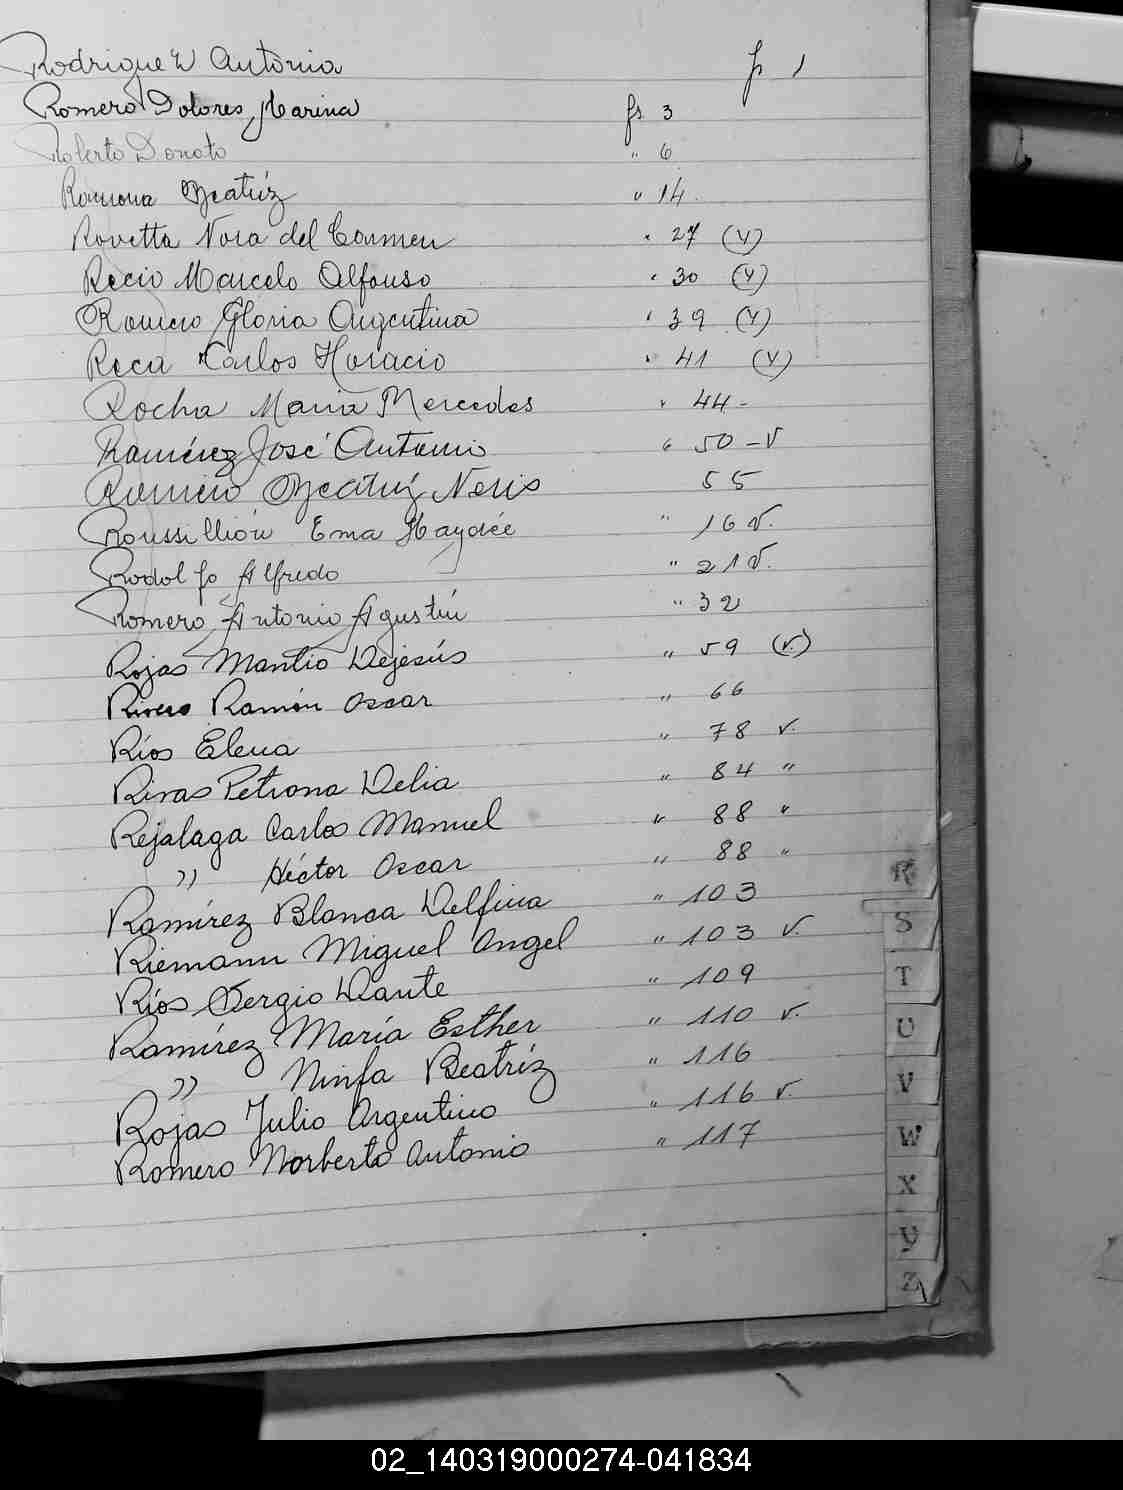 Rodriguez Antonia fs 1
Romero Dolores Marina fs 3
Roberto Donato " 6
Ramona Beatriz " 14
Rovetta Nora del Carmen " 27 (v)
Recio Marcelo Alfonso " 30 (v)
Romero Gloria Argentina " 39 (v)
Reca Carlos Horacio " 41 (v)
Rocha Maria Mercedes " 44-
Ramírez José Antonio " 50 - v
Romero Beatriz Neris 55
Roussillión Ema Haydée " 16 v.
Rodolfo Alfredo " 21 v.
Romero Antonio Agustín " 32
Rojas Mantio Dejesús " 59 (v.)
Rivero Ramón Oscar " 66
Ríos Elena " 78 v.
Rivas Petrona Delia " 84 "
Rejalaga Carlos Manuel " 88 "
" Héctor Oscar " 88 "
Ramírez Blanca Delfina " 103
Riemann Miguel Angel " 103 v.
Ríos Sergio Dante " 109
Ramírez María Esther " 110 v.
" Ninfa Beatríz " 116
Rojas Julio Argentino " 116 v.
Romero Norberto Antonio " 117
R
S
T
U
V
W
X
Y
Z
02_140319000274-041834